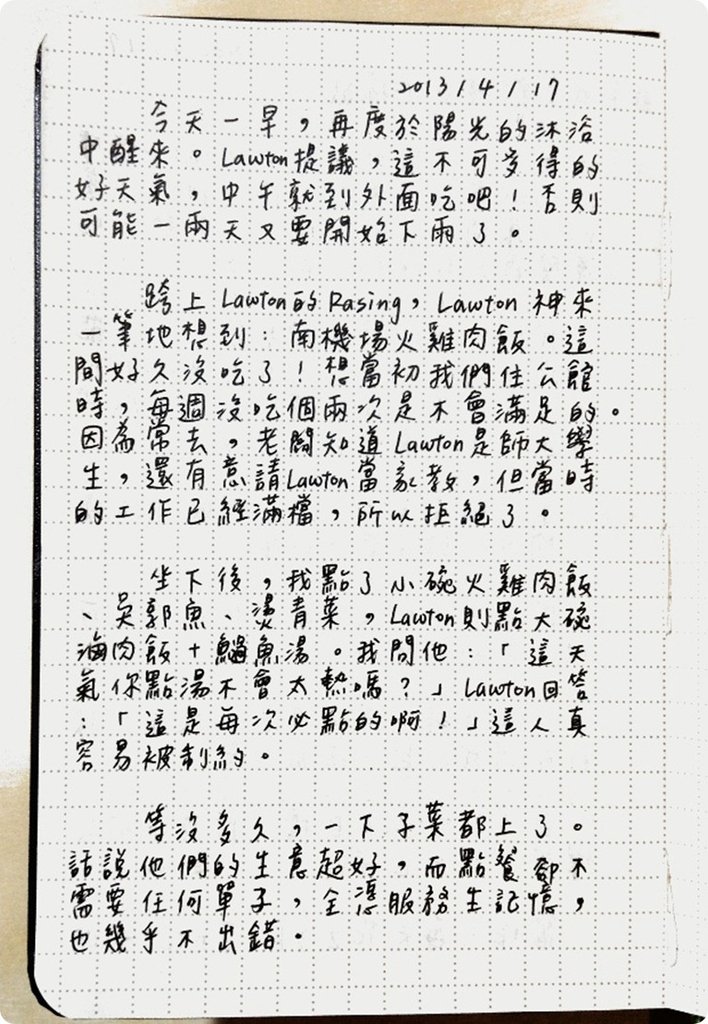 2013/4/17
今天一早，再度於陽光的沐浴
中醒來。Lawton提議，這不可多得的
好天氣，中午就到外面吃吧！否則
可能一兩天又要開始下雨了。
跨上Lawton的Rasing，Lawton神來
一筆地想到：南機場火雞肉飯。這
間好久沒吃了！想當初我們住公館
時，每週沒吃個兩次是不會滿足的。
因為常去，老闆知道Lawton是師大學
生，還有意請Lawton當家教，但當時
的工作已經滿檔，所以拒絕了。
坐下後，我點了小碗火雞肉飯
、吳郭魚、燙青菜，Lawton則點大碗
滷肉飯+鱸魚湯。我問他：「這天
氣你點湯不會太熱嗎？」Lawton回答
：「這是每次必點的啊！」這人真
容易被制約。
等沒多久，一下子菜都上了。
話說他們的生意超好，而點餐卻不
需要任何單子，全憑服務生記憶，
也幾乎不出錯。